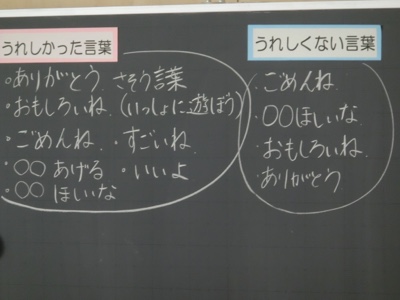 うれしかった言葉
・ありがとう さそう言葉
・おもしろいね (いっしょに遊ぼう)
・ごめんね ・すごいね
・○○あげる ・いいよ
・○○ほしいな
うれしくない言葉
・ごめんね
・○○ほしいな
・おもしろいね
・ありがとう